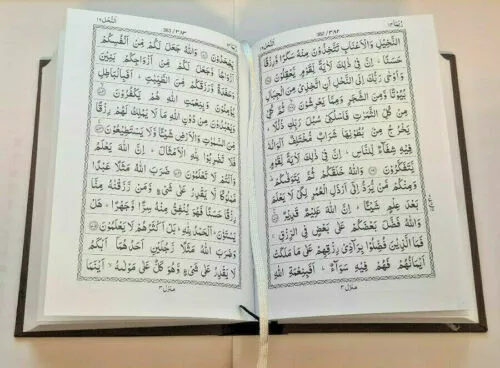 رُبَمَا ١٤ 382 / ٣٨٢ اَلنَّحْل ١٦
النَّخِيْلِ وَالْاَعْنَابِ تَتَّخِذُوْنَ مِنْهُ سَكَرًا وَّرِزْقًا
حَسَنًا ؕ اِنَّ فِىْ ذٰلِكَ لَاٰيَةً لِّقَوْمٍ يَّعْقِلُوْنَ ۝
وَاَوْحٰى رَبُّكَ اِلَى النَّحْلِ اَنِ اتَّخِذِىْ مِنَ الْجِبَالِ
بُيُوْتًا وَّمِنَ الشَّجَرِ وَمِمَّا يَعْرِشُوْنَ ۝ ثُمَّ كُلِىْ
مِنْ كُلِّ الثَّمَرٰتِ فَاسْلُكِىْ سُبُلَ رَبِّكِ ذُلُلًا ؕ
يَخْرُجُ مِنْۢ بُطُوْنِهَا شَرَابٌ مُّخْتَلِفٌ اَلْوَانُهٗ
فِيْهِ شِفَآءٌ لِّلنَّاسِ ؕ اِنَّ فِىْ ذٰلِكَ لَاٰيَةً لِّقَوْمٍ
يَّتَفَكَّرُوْنَ ۝ وَاللّٰهُ خَلَقَكُمْ ثُمَّ يَتَوَفّٰىكُمْ ۙ
وَمِنْكُمْ مَّنْ يُّرَدُّ اِلٰٓى اَرْذَلِ الْعُمُرِ لِكَىْ لَا يَعْلَمَ
بَعْدَ عِلْمٍ شَيْـًٔا ؕ اِنَّ اللّٰهَ عَلِيْمٌ قَدِيْرٌ ۝
وَاللّٰهُ فَضَّلَ بَعْضَكُمْ عَلٰى بَعْضٍ فِى الرِّزْقِ ۚ
فَمَا الَّذِيْنَ فُضِّلُوْا بِرَآدِّىْ رِزْقِهِمْ عَلٰى مَا مَلَكَتْ
اَيْمَانُهُمْ فَهُمْ فِيْهِ سَوَآءٌ ؕ اَفَبِنِعْمَةِ اللّٰهِ
منزل ٣
رُبَمَا ١٤ 383 / ٣٨٣ اَلنَّحْل ١٦
يَجْحَدُوْنَ ۝ وَاللّٰهُ جَعَلَ لَكُمْ مِّنْ اَنْفُسِكُمْ
اَزْوَاجًا وَّجَعَلَ لَكُمْ مِّنْ اَزْوَاجِكُمْ بَنِيْنَ
وَحَفَدَةً وَّرَزَقَكُمْ مِّنَ الطَّيِّبٰتِ ؕ اَفَبِالْبَاطِلِ
يُؤْمِنُوْنَ وَبِنِعْمَتِ اللّٰهِ هُمْ يَكْفُرُوْنَ ۝
وَيَعْبُدُوْنَ مِنْ دُوْنِ اللّٰهِ مَا لَا يَمْلِكُ لَهُمْ رِزْقًا
مِّنَ السَّمٰوٰتِ وَالْاَرْضِ شَيْـًٔا وَّلَا يَسْتَطِيْعُوْنَ ۝
فَلَا تَضْرِبُوْا لِلّٰهِ الْاَمْثَالَ ؕ اِنَّ اللّٰهَ يَعْلَمُ
وَاَنْتُمْ لَا تَعْلَمُوْنَ ۝ ضَرَبَ اللّٰهُ مَثَلًا عَبْدًا
مَّمْلُوْكًا لَّا يَقْدِرُ عَلٰى شَىْءٍ وَّمَنْ رَّزَقْنٰهُ مِنَّا
رِزْقًا حَسَنًا فَهُوَ يُنْفِقُ مِنْهُ سِرًّا وَّجَهْرًا ؕ هَلْ
يَسْتَوٗنَ ؕ اَلْحَمْدُ لِلّٰهِ ؕ بَلْ اَكْثَرُهُمْ لَا يَعْلَمُوْنَ ۝
وَضَرَبَ اللّٰهُ مَثَلًا رَّجُلَيْنِ اَحَدُهُمَاۤ اَبْكَمُ
لَا يَقْدِرُ عَلٰى شَىْءٍ وَّهُوَ كَلٌّ عَلٰى مَوْلٰىهُ ۙ اَيْنَمَا
منزل ٣